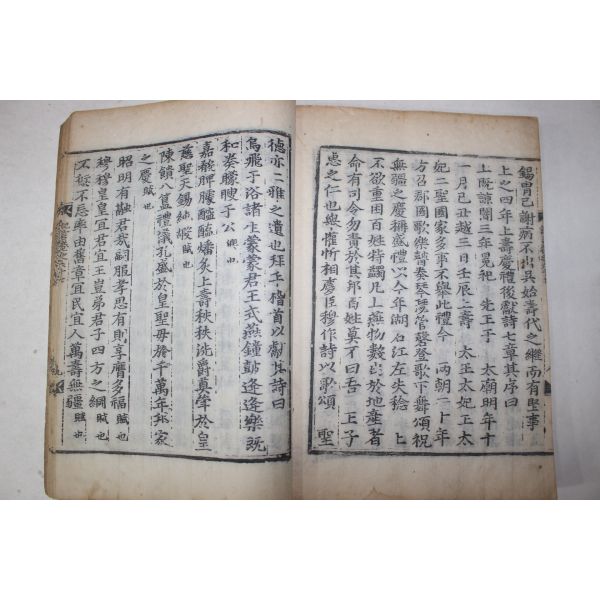 錫胄已謝病不出吳始壽代之繼南有堅事
上之四年上壽慶禮後獻詩七章其序曰
上旣諒闇三年冕祀 先王于 太廟明年十
一月己丑越三日壬辰上壽 太王太妃王太
妃二聖國家多事不擧此禮今 兩朝二十年
方召郡國歌樂瞽奏琴瑟管磬登歌下舞頌祝
無疆之慶稱盛禮以今年湖石江左失稔 上
不欲重困百姓特蠲凡上燕物數出於地産者
命有司令勿責於其邦百姓莫不曰吾 王子
惠之仁也與 忻相 臣穆作詩以歌頌 聖
德亦二雅之遺也拜手稽首以獻其詩曰
鳥飛于浴諸 蒙蒙君王式燕鐘鼓逢逢樂旣
和奏矇瞍于公 也
嘉殽脾臄醓醢燔炙上壽秩秩洗爵奠斝於皇
慈聖天錫純嘏賦也
陳饋八簋禮儀孔盛於皇聖母於千萬年邦家
之慶賦也
昭明有融君哉嗣服孝思有則享膺多福賦也
穆穆皇皇宜君宜王豈弟君子四方之綱賦也
不愆不忘率由舊章宜民宜人萬壽無疆賦也